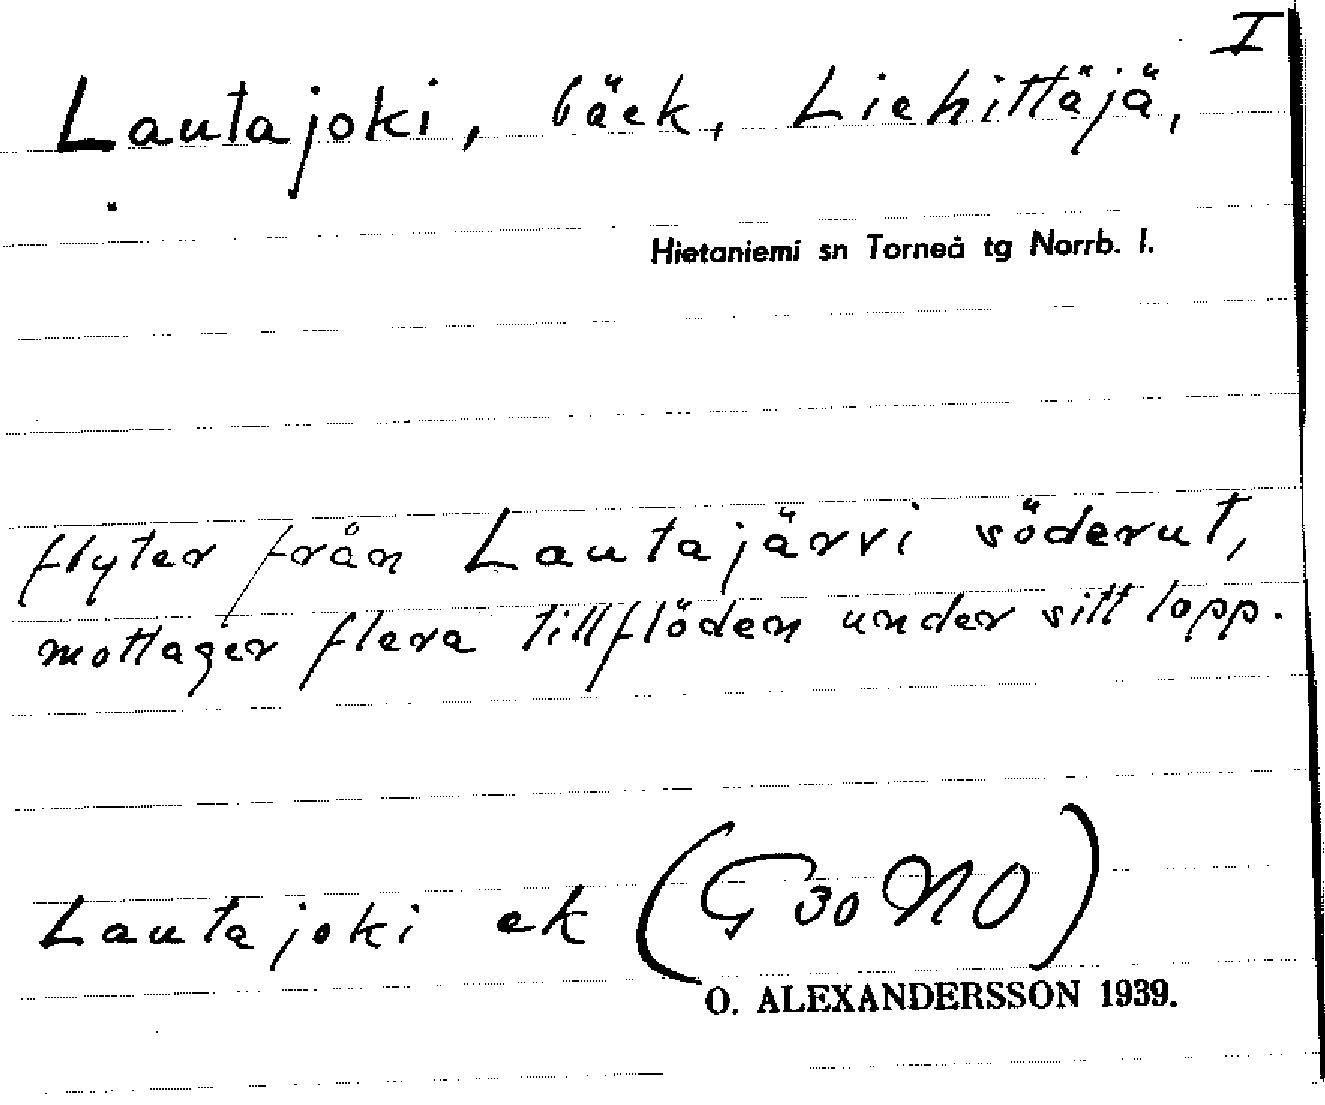 I
Lautajoki, bäck, Liehittäjä,
Hietaniemi sn Torneå tg Norrb. l.
flyter från Lautajärvi söderut,
mottager flera tillflöden under sitt lopp.
Lautajoki ek (G 30 NO)
O. ALEXANDERSSON 1939.